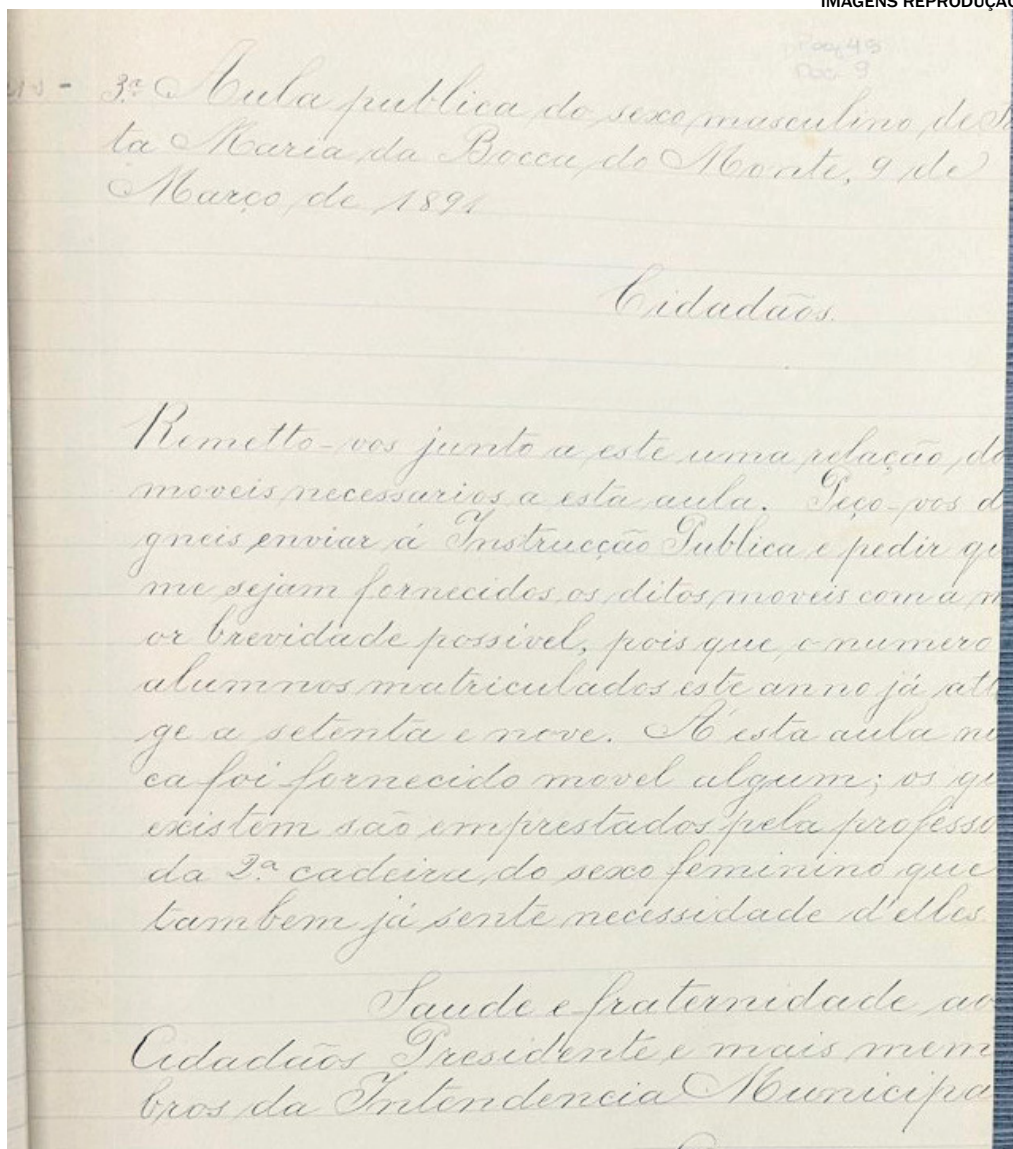 IMAGENS REPRODUÇÃO
Pag 49
Doc. 9
3ª Aula publica do sexo masculino de
ta Maria da Bocca do Monte, 9 de
Março de 1891
Cidadãos.
Remetto-vos junto a este uma relação
moveis necessarios a esta aula. Peço-vos d
gneis enviar á Instrucção Publica e pedir qu
me sejam fornecidos os ditos moveis com a m
or brevidade possivel, pois que o numero
alumnos matriculados este anno já att
ge a setenta e nove. A esta aula nu
ca foi fornecido movel algum; os qu
existem são emprestados pela professo
da 2ª cadeira do sexo feminino que
tambem já sente necessidade d'elles
Saude e fraternidade ao
Cidadãos Presidente e mais mem
bros da Intendencia Municipa